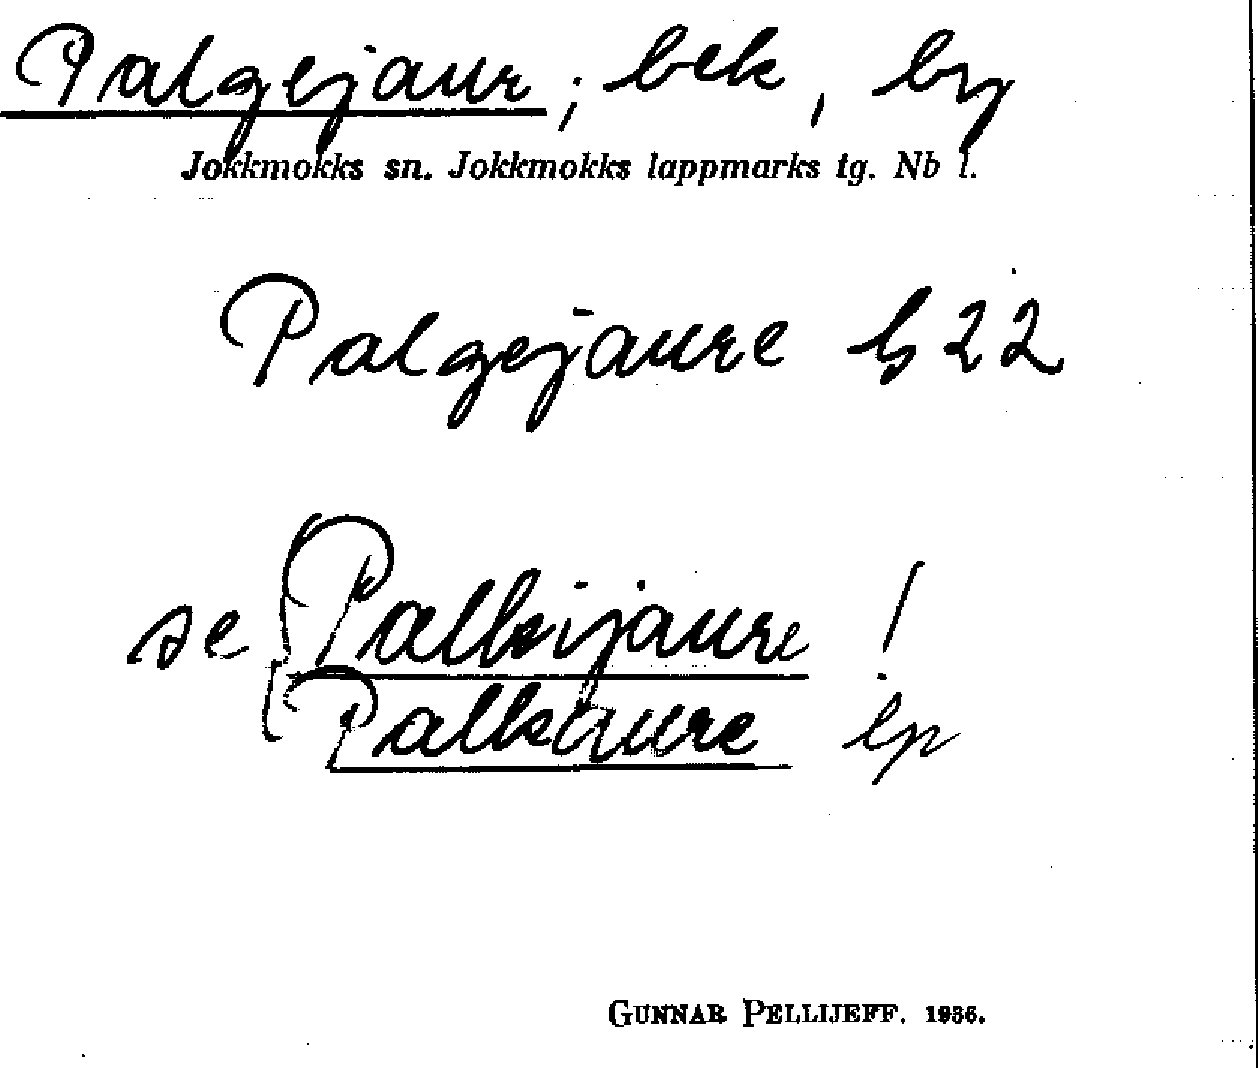 Palgejaur; bek, by
Jokkmokks sn. Jokkmokks lappmarks tg. Nb l.
Palgejaure G 22
se Palkijaure!
Palkaure lp
GUNNAR PELLIJEFF. 1936.